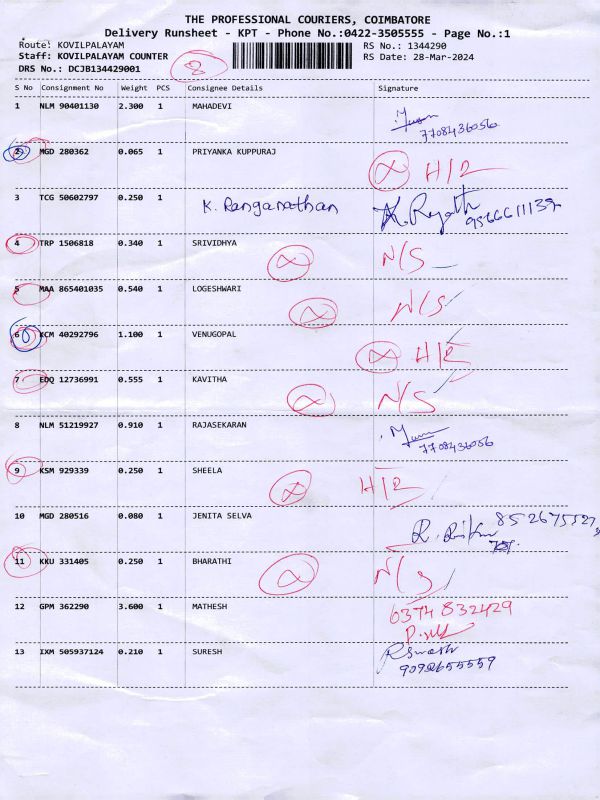 THE PROFESSIONAL COURIERS, COIMBATORE
Delivery Runsheet - KPT - Phone No.:0422-3505555 - Page No.:1
Route: KOVILPALAYAM RS No.: 1344290
Staff: KOVILPALAYAM COUNTER RS Date: 28-Mar-2024
DRS No.: DCJB134429001 8
S No Consignment No Weight PCS Consignee Details Signature
1 NLM 90401130 2.300 1 MAHADEVI
7708436056
2 MGD 280362 0.065 1 PRIYANKA KUPPURAJ
H/2
3 TCG 50602797 0.250 1 K. Ranganathan
9566611139
4 TRP 1506818 0.340 1 SRIVIDHYA N/S
5 MAA 865401035 0.540 1 LOGESHWARI N/S
6 KCM 40292796 1.100 1 VENUGOPAL
H/2
7 EDQ 12736991 0.555 1 KAVITHA N/S
8 NLM 51219927 0.910 1 RAJASEKARAN
7708436056
9 KSM 929339 0.250 1 SHEELA H/2
10 MGD 280516 0.080 1 JENITA SELVA
11 KKU 331405 0.250 1 BHARATHI N/S
12 GPM 362290 3.600 1 MATHESH 6374832429
13 IXM 505937124 0.210 1 SURESH
9092655559